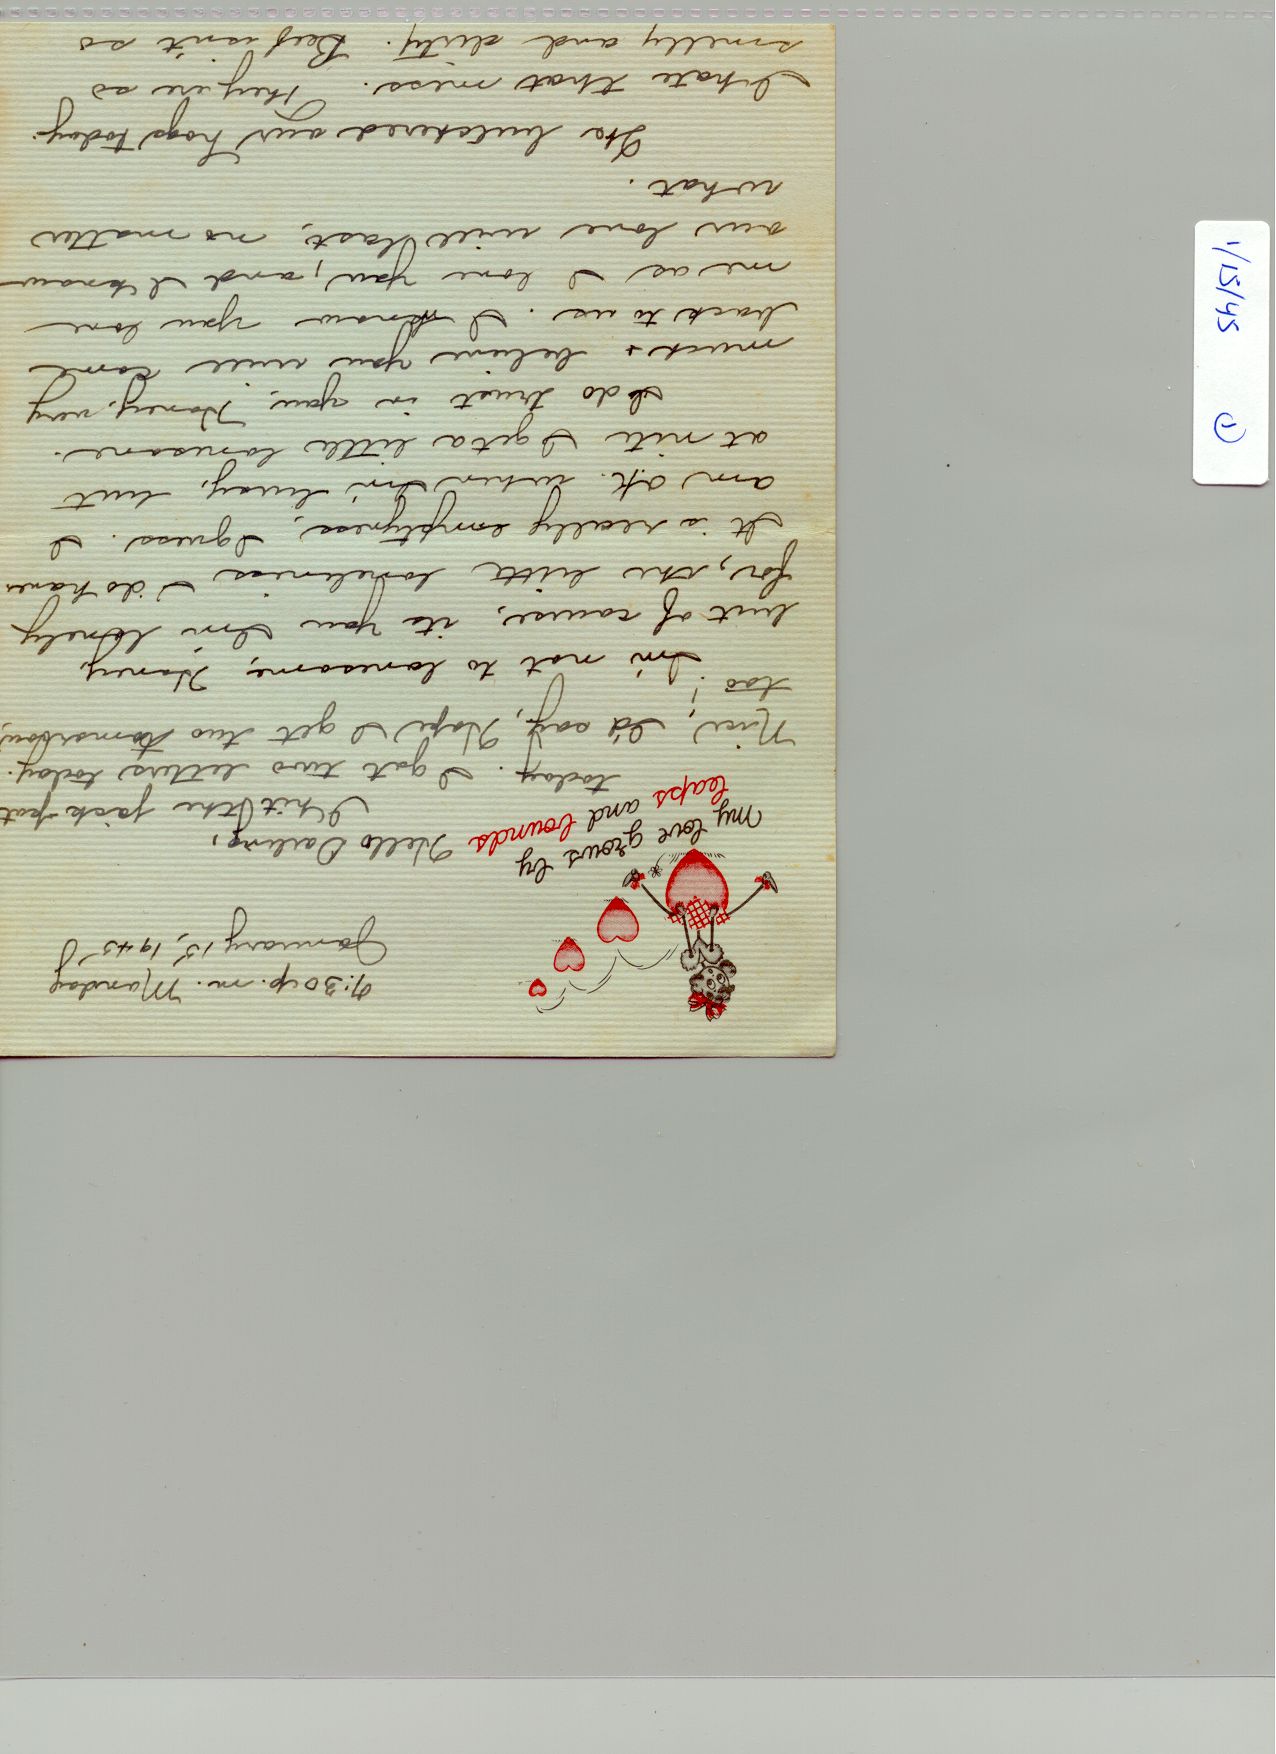 9:30 p.m. Monday
January 15, 1945
My love grows by
leaps and bounds
Hello Darling,
I hit the jack-pot
today. I got two letters today.
Nice, I'd say. Hope I get two tomorrow,
too!
I'm not to lonesome, Honey,
but of course, its you I'm lonely
for, the little loneliness I do have.
It is really emptyness, I guess. I
am o.k. when I'm busy, but
at nite I get a little lonesome.
I do trust in you, Honey, very
much + believe you will come
back to us. I know you love
me as I love you, and I know
our love will last, no matter
what.
We butchered our hogs today.
I hate that mess. They are so
smelly and dirty. Beef isn't so
1/15/45 (1)